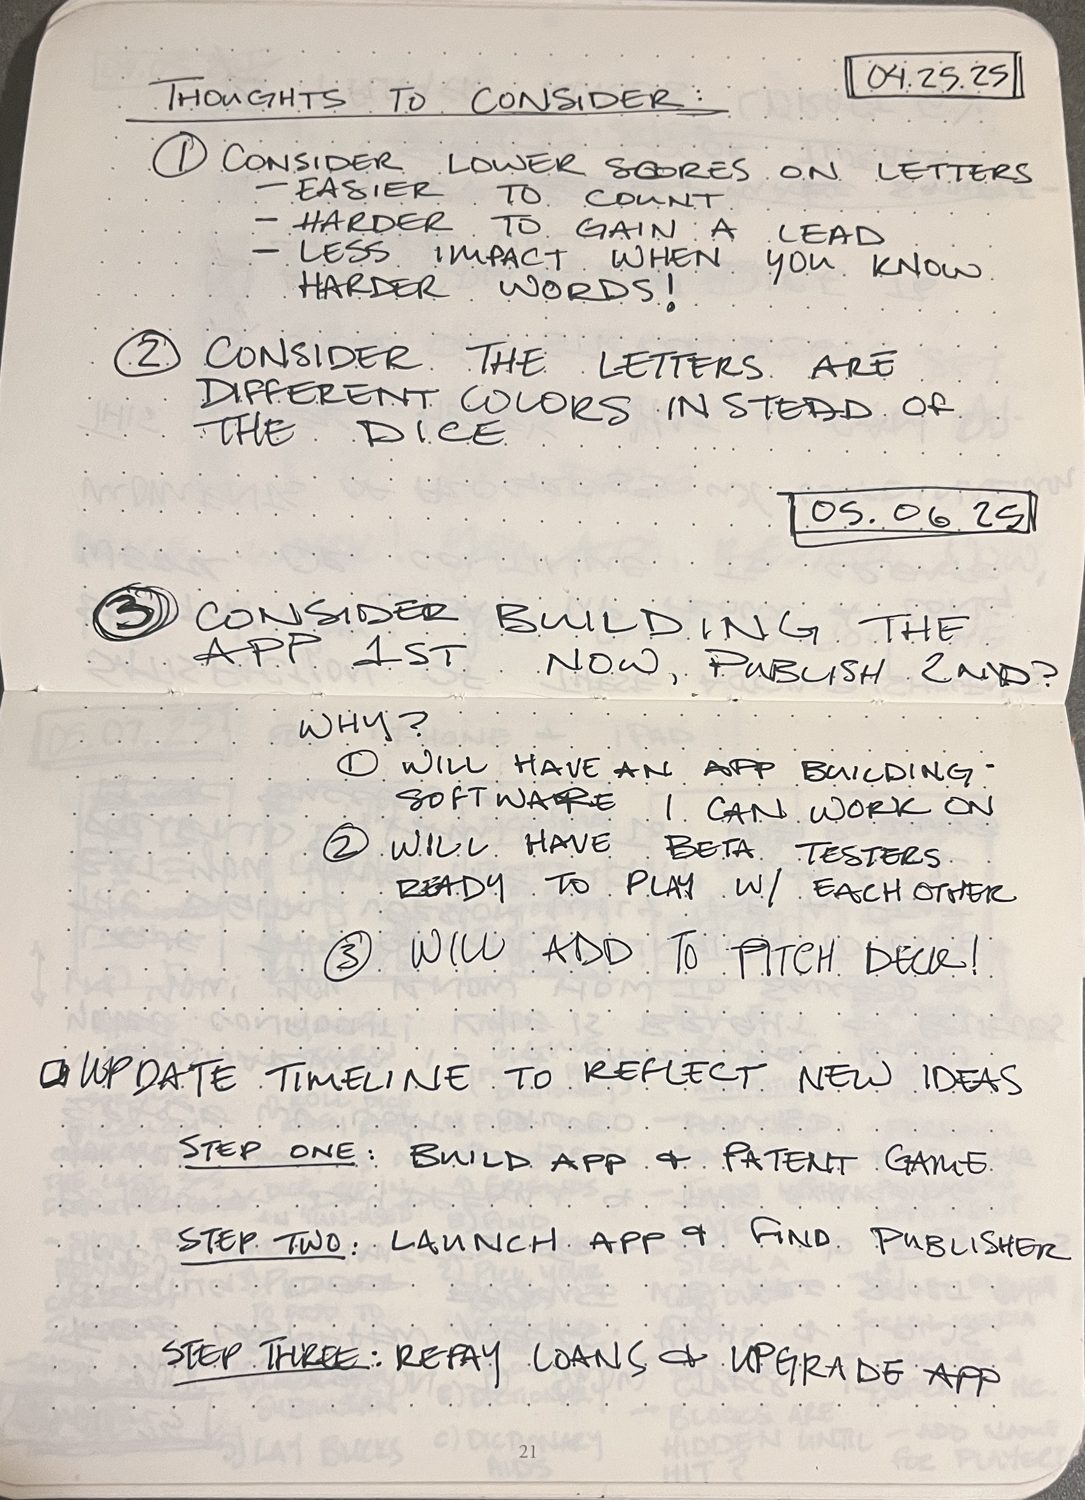 04.25.25
THOUGHTS TO CONSIDER:
① CONSIDER LOWER SCORES ON LETTERS
- EASIER TO COUNT
- HARDER TO GAIN A LEAD
- LESS IMPACT WHEN YOU KNOW
HARDER WORDS!
② CONSIDER THE LETTERS ARE
DIFFERENT COLORS INSTEAD OF
THE DICE
05.06 25
③ CONSIDER BUILDING THE
APP 1ST NOW, PUBLISH 2ND?
WHY?
① WILL HAVE AN APP BUILDING-
SOFTWARE I CAN WORK ON
② WILL HAVE BETA TESTERS
READY TO PLAY W/ EACH OTHER
③ WILL ADD TO PITCH DECK!
☐ UPDATE TIMELINE TO REFLECT NEW IDEAS
STEP ONE: BUILD APP & PATENT GAME
STEP TWO: LAUNCH APP & FIND PUBLISHER
STEP THREE: REPAY LOANS & UPGRADE APP
21